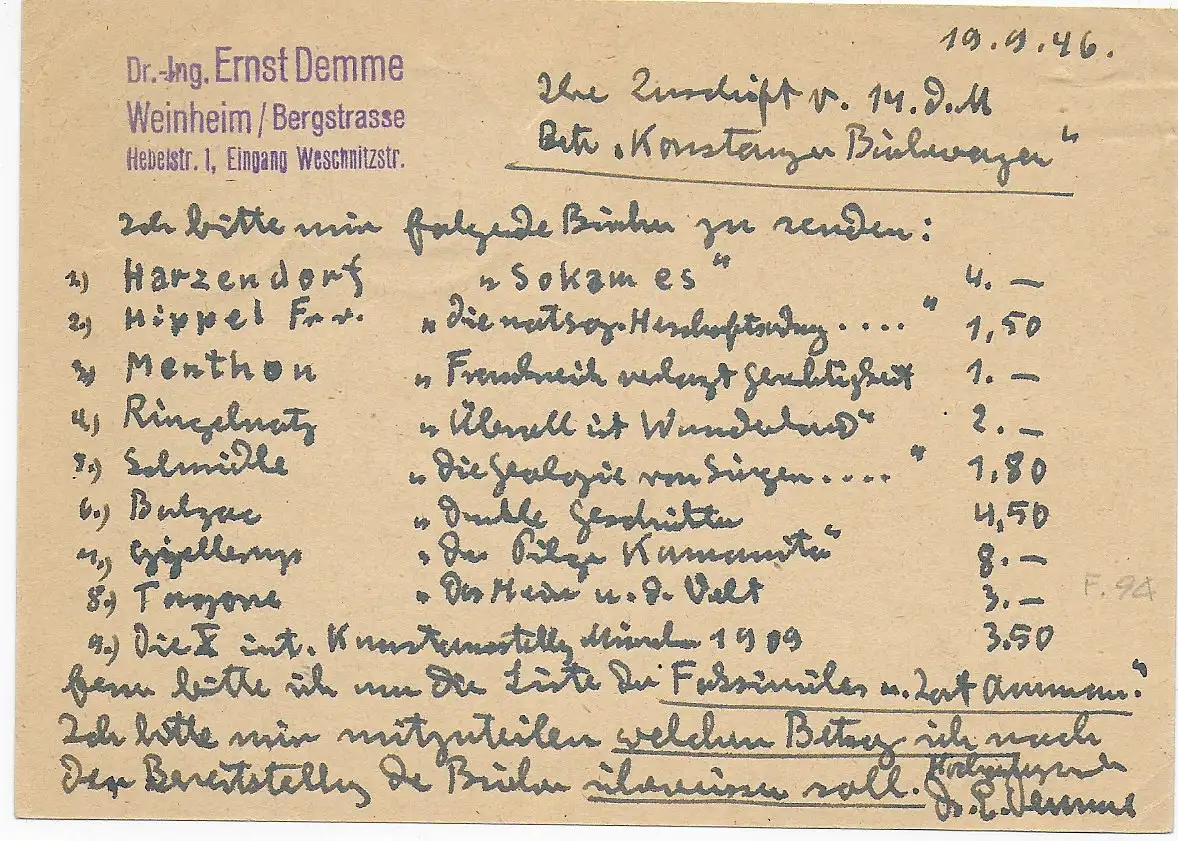 19.9.46.
Dr.-Ing. Ernst Demme
Weinheim / Bergstrasse
Hebelstr. 1, Eingang Weschnitzstr.
Ihre Zuschrift v. 14. d. M
Betr. „Konstanzer Bücherwagen"
Ich bitte mir folgende Bücher zu senden:
1) Harzendorf „Sokames" 4.—
2.) Hippel Fr. v. „Die natsoz. Herrschaftsordng...." 1,50
3) Menthon „Frankreich verlangt Gerechtigkeit 1.—
4) Ringelnatz „Überall ist Wunderland" 2.—
5.) Schmidle „Die Geologie von Singen...." 1,80
6.) Balzac „Dunkle Geschichten 4,50
7.) Gjellerup „Der Pilger Kamanita" 8.—
8.) Tagore „Das Heim u. d. Welt 3.—
9.) Die X int. Kunstausstellg München 1909 3.50
F. 94
Ferner bitte ich um die Liste der Faksimiles u.
Ich bitte mir mitzuteilen welchen Betrag ich nach
der Bereitstellg der Bücher überweisen soll.
Hochachtungsvoll
Dr. E. Demme